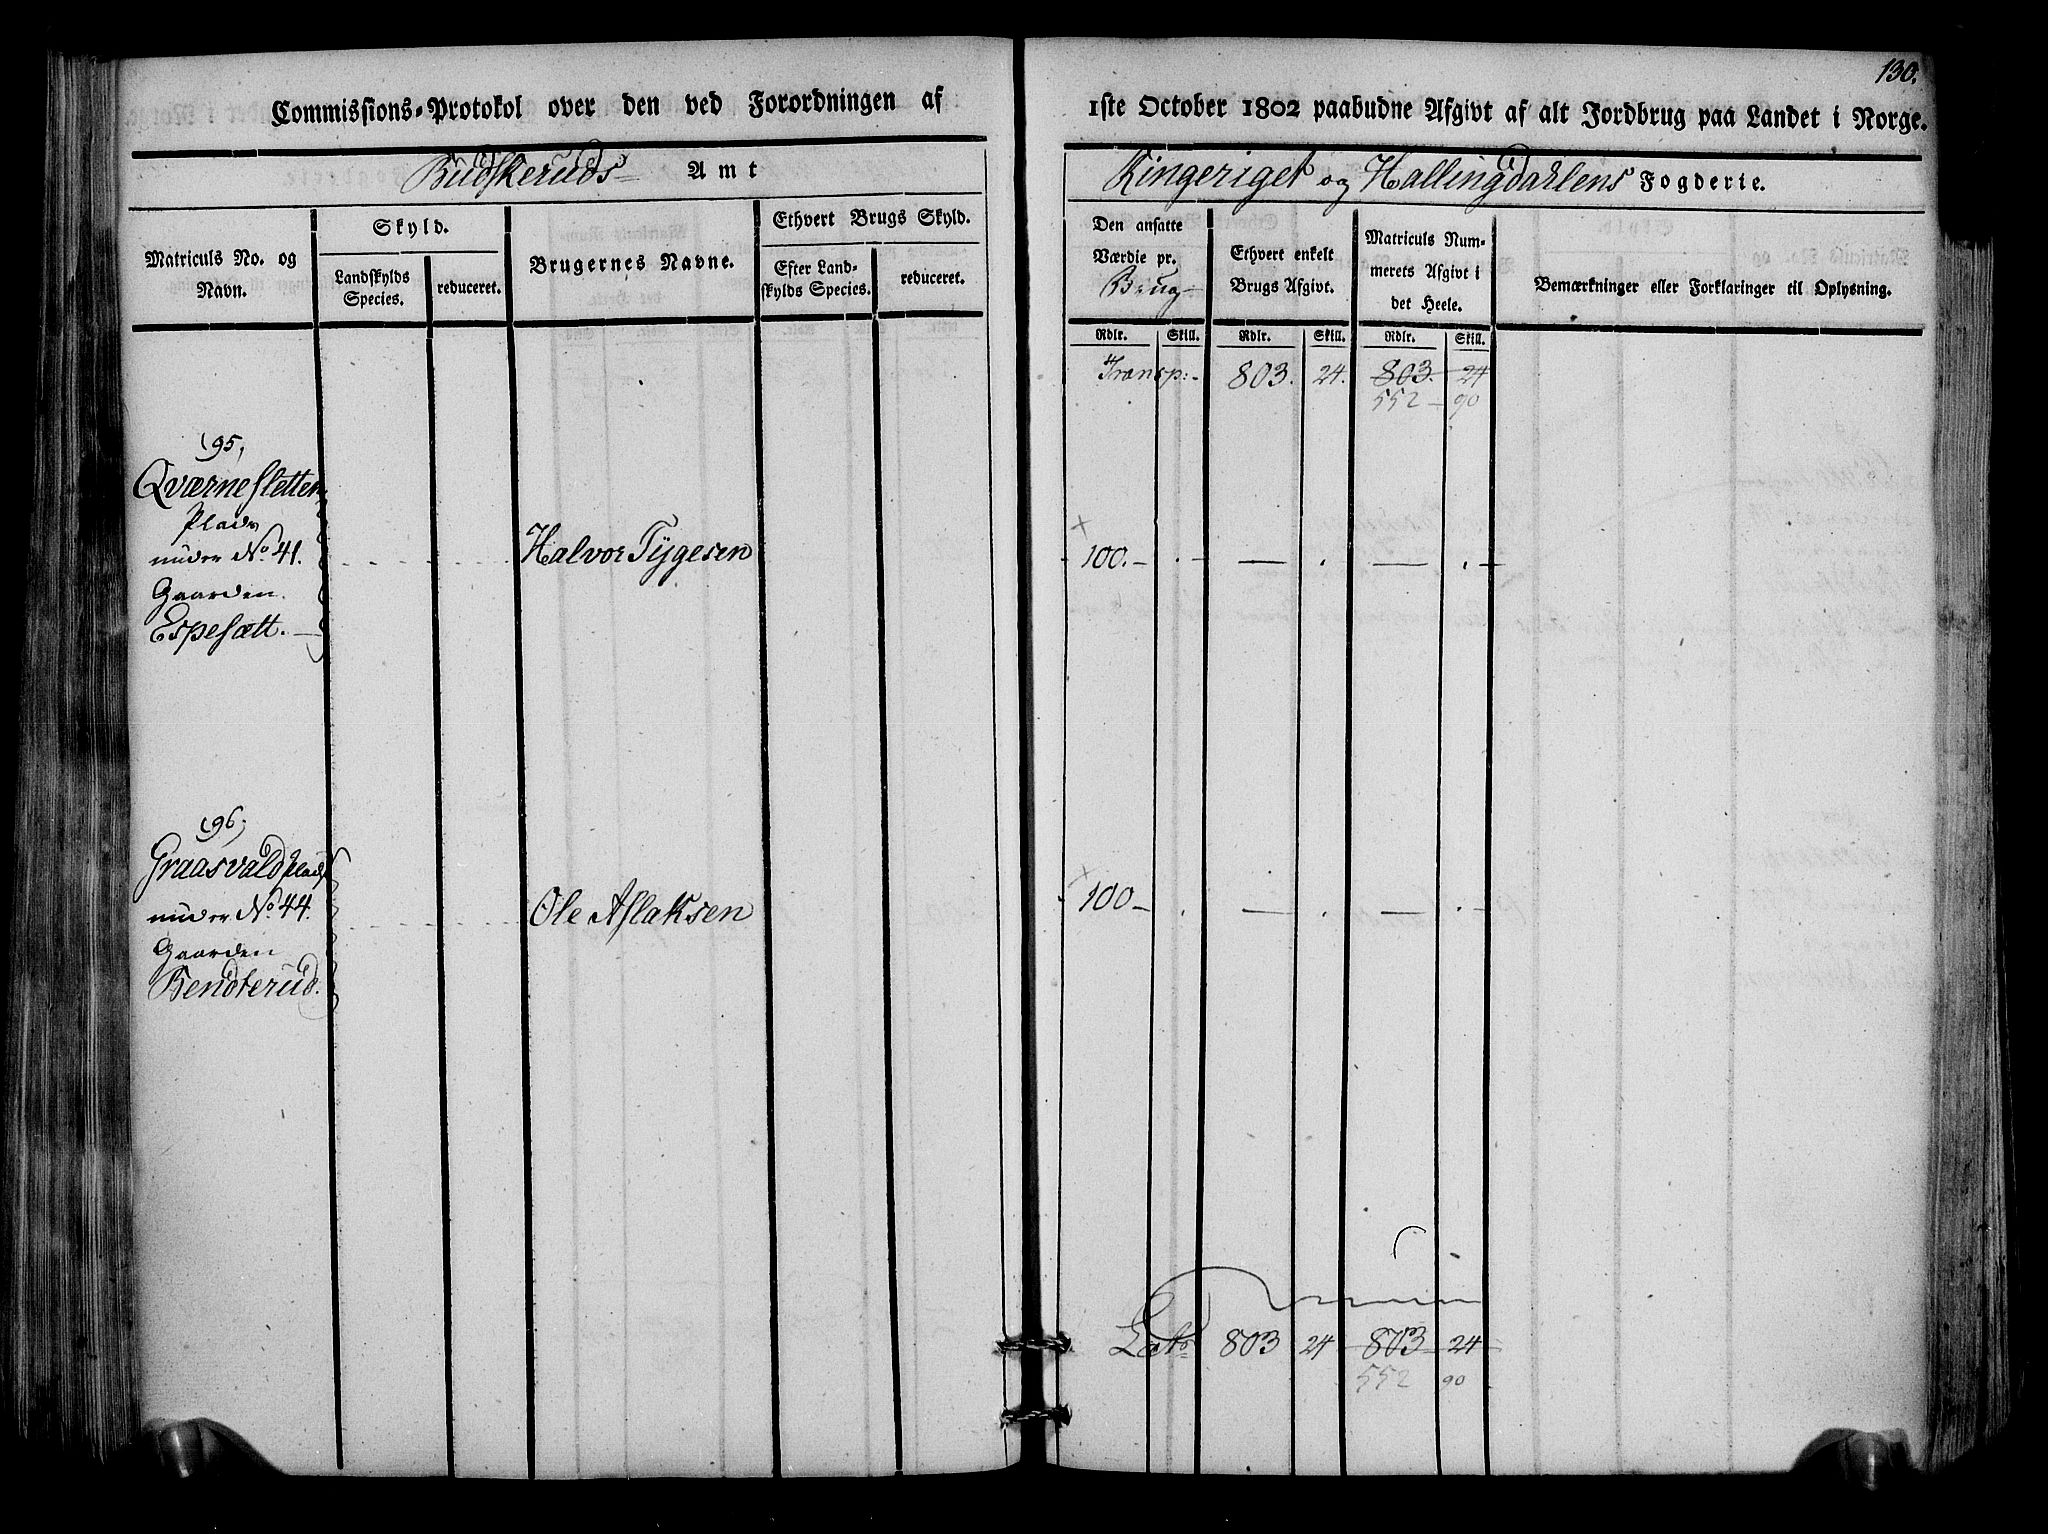 130.
Commissions-Protokol over den ved Forordningen af 1ste October 1802 paabudne Afgivt af alt Jordbrug paa Landet i Norge.
Budskeruds Amt
Ringeriget og Hallingdahlens Fogderie.
Matriculs No. og Navn.
Skyld.
Landskylds Species.
reduceret.
Brugernes Navne.
Ethvert Brugs Skyld.
Efter Landskylds Species.
reduceret.
Den ansatte Værdie pr. Brug
Ethvert enkelt Brugs Afgivt.
Matriculs Nummerets Afgivt i det Heele.
Bemærkninger eller Forklaringer til Oplysning.
Rdlr. Skill. Rdlr. Skill. Rdlr. Skill.
Transp:- 803. 24. 803. 24
552 - 90
195,
Qværnesletten
Plads
under No. 41. Halvor Tygesen 100.- . — . — . —
Gaarden
Espesætt.
196,
Graasvald Plads
under No. 44. Ole Aslaksen 100 - . — . — . —
Gaarden
Bendterud.
Lats 803 24 803 24
552 90